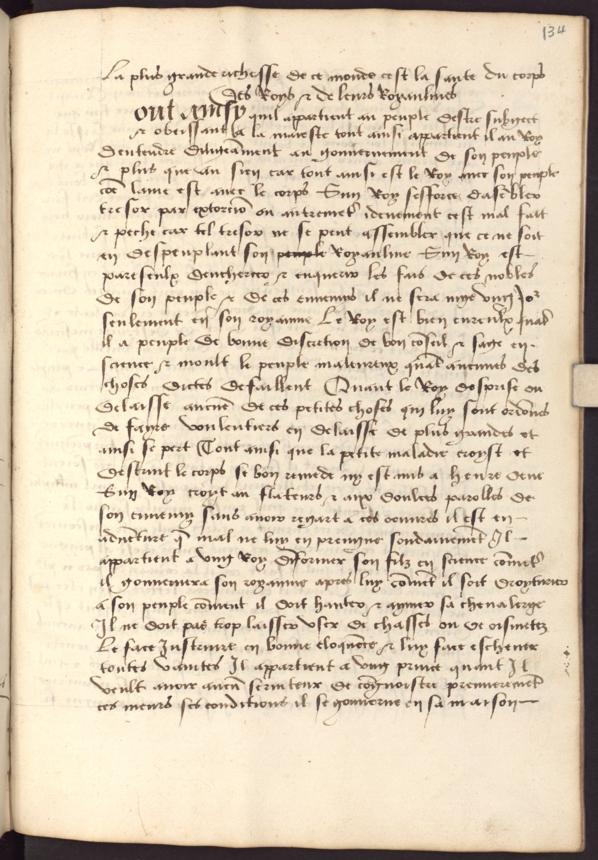 134
La plus grande richesse de ce monde cest la sante du corps
Des Roys & de leurs Royaulmes
out Ainsy quil appartient au peuple destre subgect
& obeissant a la maieste tout ainsi appartient il au Roy
dentendre diligeament au gouuernement de son peuple
& plus que au sien car tout ainsi est le Roy auec son peuple
cõe lame est auec le corps Sung Roy sefforce dasẽbler
tresor par extorciõ ou autremẽt iduement cest mal fait
& peche car tel tresor ne se peut assembler que ce ne soit
en despeuplant son peuple Royaulme Sung Roy est
paresseulx dencherce & enquerir les fais de ces nobles
de son peuple & de ces ennemis il ne sera mye vng Jor
seulement en son royaume Le Roy est bien eureulx quãt
il a peuple de bonne discretion de bon cõseil & sage en
science & moult le peuple maleureux quãt aucunes des
choses dictes defaillent Quant le Roy desprise ou
delaisse aucũe de ces petites choses qui luy sont ordõnes
de fayre voulentiers en delaisse de plus grandes et
ainsi se pert Tout ainsi que la petite maladie croyst et
destruit le corps se bon remede ny est mis a heure deue
Sung Roy croyt au flateurs & aux doulces parolles de
son ennemy sans auoir regart a ces oeuures il est en
aduẽture q̃ mal ne luy en preigne soudainemẽt Il
appartient a vng Roy dinformer son filz en science cõmẽt
il gouuernera son royaume apres luy cõmẽt il soit droyturier
a son peuple cõment il doit hanter & aymer sa cheualerye
Il ne doit pas trop laisser vser de chasses ou de oisiuetez
Le face Instruire en bonne eloquẽce & luy face escheuer
toutes vanites Il appartient a vng prince quant Il
veult auoir aucũ seruiteur de cõgnoistre premieremẽt
ces meurs ses conditions il se gouuerne en sa maison